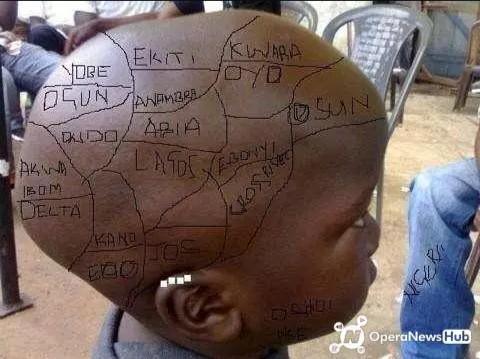 YOBE
OGUN
EKITI
KWARA
OYO
ANAMBRA
ONDO
ABIA
OSUN
LAGOS
EBONYI
CROSS RIVER
AKWA
IBOM
DELTA
KANO
EDO
JOS
OperaNewsHub